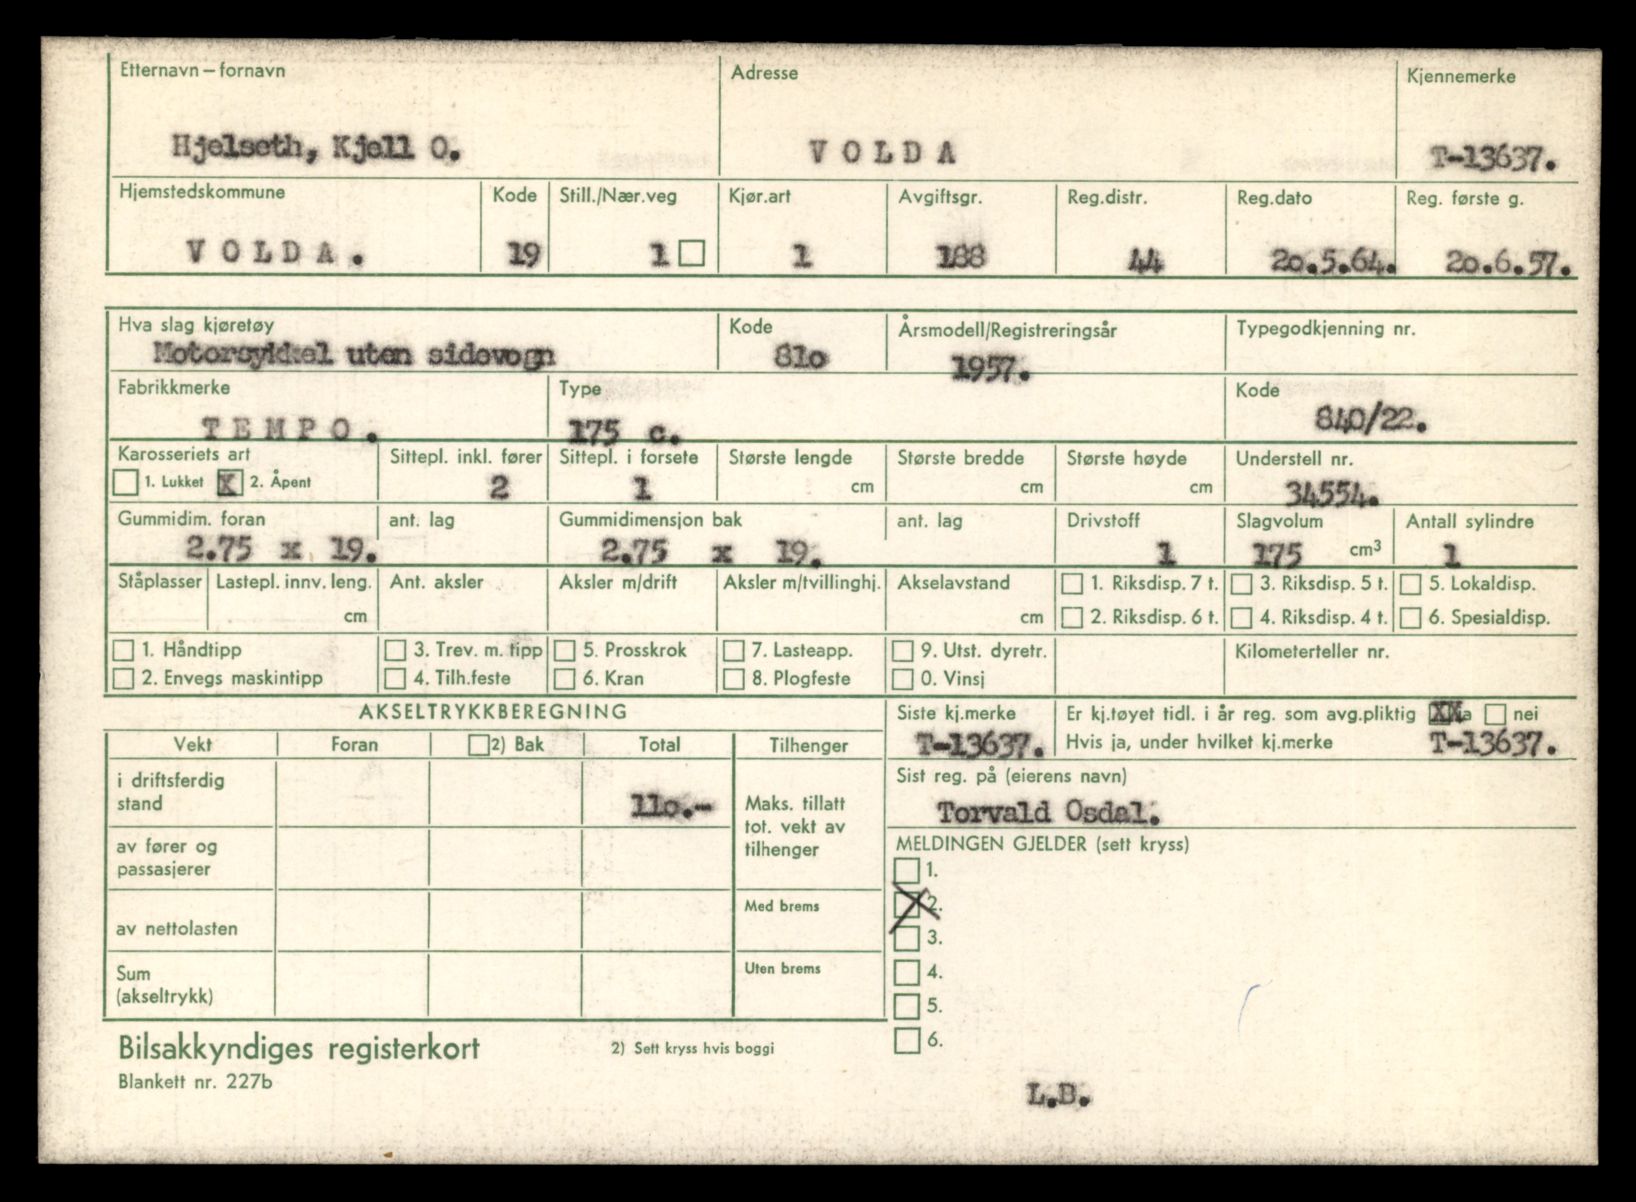 Etternavn – fornavn Adresse Kjennemerke
Hjelseth, Kjell O. VOLDA T-13637.
Hjemstedskommune Kode Still./Nær.veg Kjør.art Avgiftsgr. Reg.distr. Reg.dato Reg. første g.
VOLDA. 19 1 1 188 44 20.5.64. 20.6.57.
Hva slag kjøretøy Kode Årsmodell/Registreringsår Typegodkjenning nr.
Motorsykkel uten sidevogn 81o 1957.
Fabrikkmerke Type Kode
TEMPO. 175 c. 840/22.
Karosseriets art Sittepl. inkl. fører Sittepl. i forsete Største lengde Største bredde Største høyde Understell nr.
1. Lukket X 2. Åpent 2 1 cm cm cm 34554.
Gummidim. foran ant. lag Gummidimensjon bak ant. lag Drivstoff Slagvolum Antall sylindre
2.75 x 19. 2.75 x 19. 1 175 cm3 1
Ståplasser Lastepl. innv. leng. Ant. aksler Aksler m/drift Aksler m/tvillinghj. Akselavstand 1. Riksdisp. 7 t. 3. Riksdisp. 5 t. 5. Lokaldisp.
cm cm 2. Riksdisp. 6 t. 4. Riksdisp. 4 t. 6. Spesialdisp.
1. Håndtipp 3. Trev. m. tipp 5. Prosskrok 7. Lasteapp. 9. Utst. dyretr. Kilometerteller nr.
2. Envegs maskintipp 4. Tilh.feste 6. Kran 8. Plogfeste 0. Vinsj
AKSELTRYKKBEREGNING Siste kj.merke Er kj.tøyet tidl. i år reg. som avg.pliktig XXa nei
Vekt Foran 2) Bak Total Tilhenger T-13637. Hvis ja, under hvilket kj.merke T-13637.
i driftsferdig stand 11o.- Sist reg. på (eierens navn)
Maks. tillatt tot. vekt av tilhenger Torvald Osdal.
av fører og passasjerer MELDINGEN GJELDER (sett kryss)
1.
Med brems 2.
av nettolasten 3.
Sum (akseltrykk) Uten brems 4.
5.
Bilsakkyndiges registerkort 2) Sett kryss hvis boggi 6.
Blankett nr. 227b
L.B.